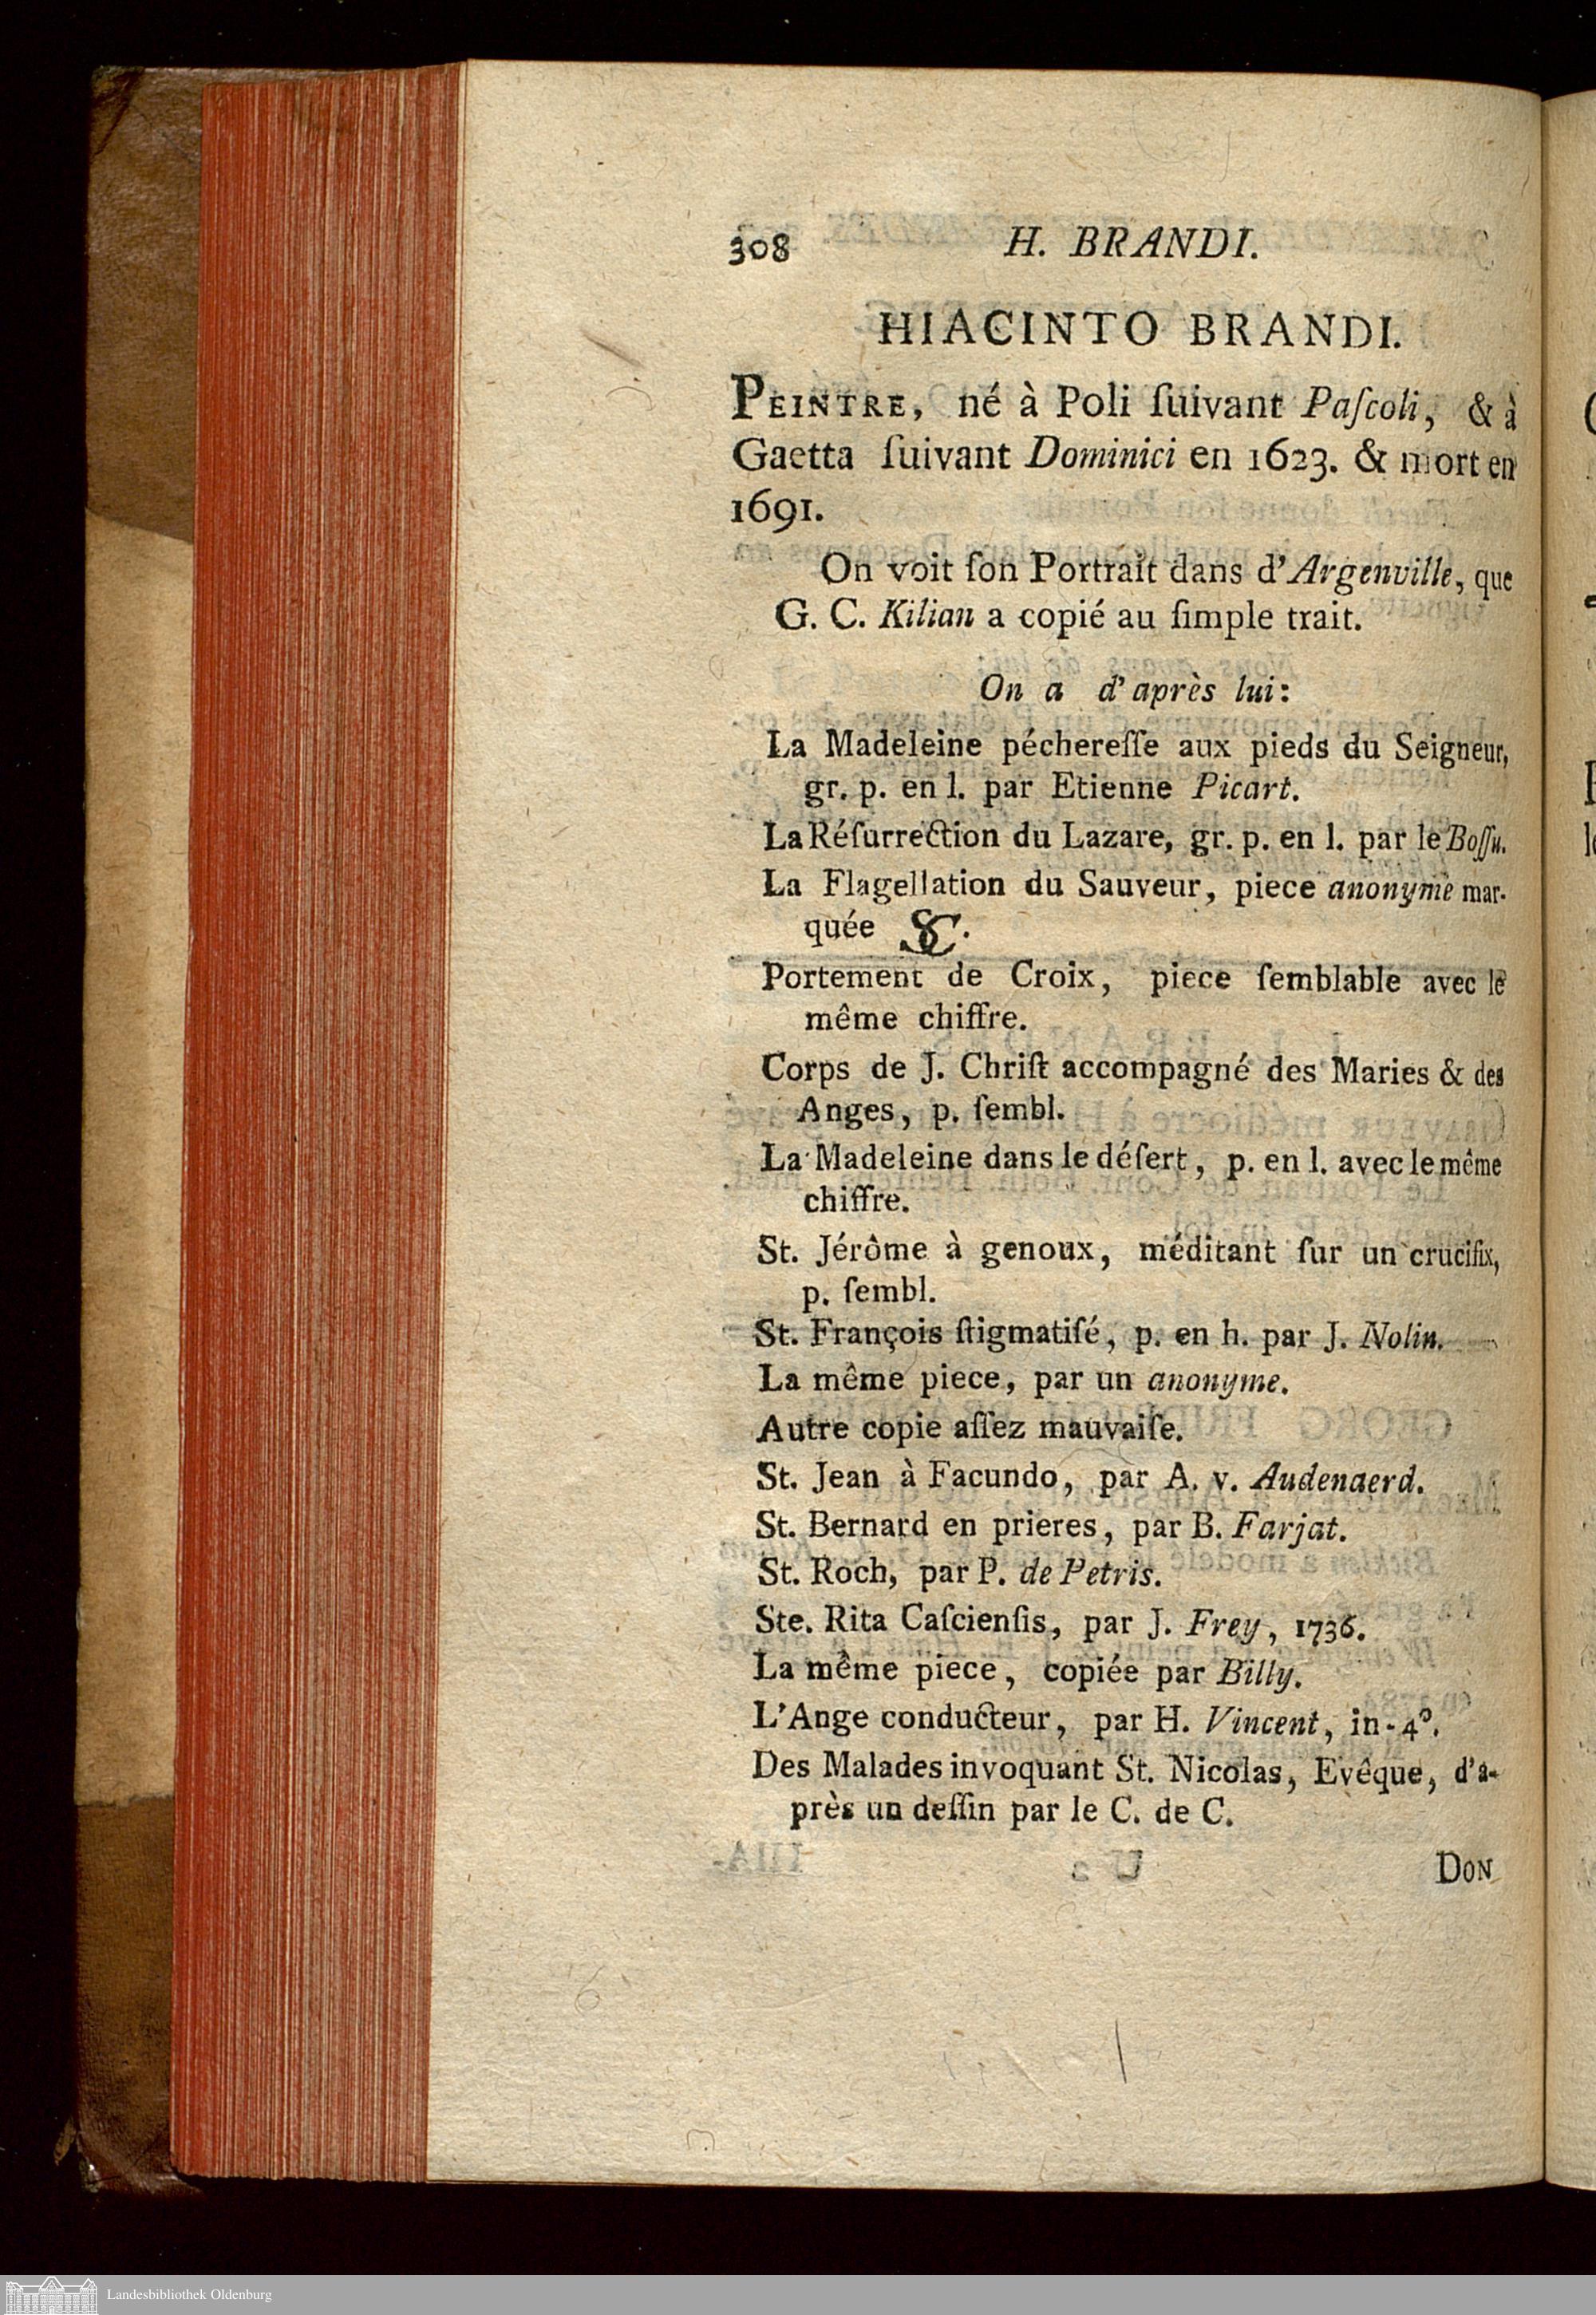 308 H. BRANDI.
HIACINTO BRANDI.
PEINTRE, né à Poli ſuivant Paſcoli, & à
Gaetta ſuivant Dominici en 1623. & mort en
1691.
On voit ſon Portrait dans d'Argenville, que
G. C. Kilian a copié au ſimple trait.
On a d'après lui:
La Madeleine péchereſſe aux pieds du Seigneur,
gr. p. en l. par Etienne Picart.
La Réſurrection du Lazare, gr. p. en l. par le Boſſu.
La Flagellation du Sauveur, piece anonyme mar-
quée SC.
Portement de Croix, piece ſemblable avec le
même chiffre.
Corps de J. Chriſt accompagné des Maries & des
Anges, p. ſembl.
La Madeleine dans le déſert, p. en l. avec le même
chiffre.
St. Jérôme à genoux, méditant ſur un crucifix,
p. ſembl.
St. François ſtigmatiſé, p. en h. par J. Nolin.
La même piece, par un anonyme.
Autre copie aſſez mauvaiſe.
St. Jean à Facundo, par A. v. Audenaerd.
St. Bernard en prieres, par B. Farjat.
St. Roch, par P. de Petris.
Ste. Rita Caſcienſis, par J. Frey, 1736.
La même piece, copiée par Billy.
L'Ange conducteur, par H. Vincent, in-4°.
Des Malades invoquant St. Nicolas, Evêque, d'a-
près un deſſin par le C. de C.
DON
Landesbibliothek Oldenburg